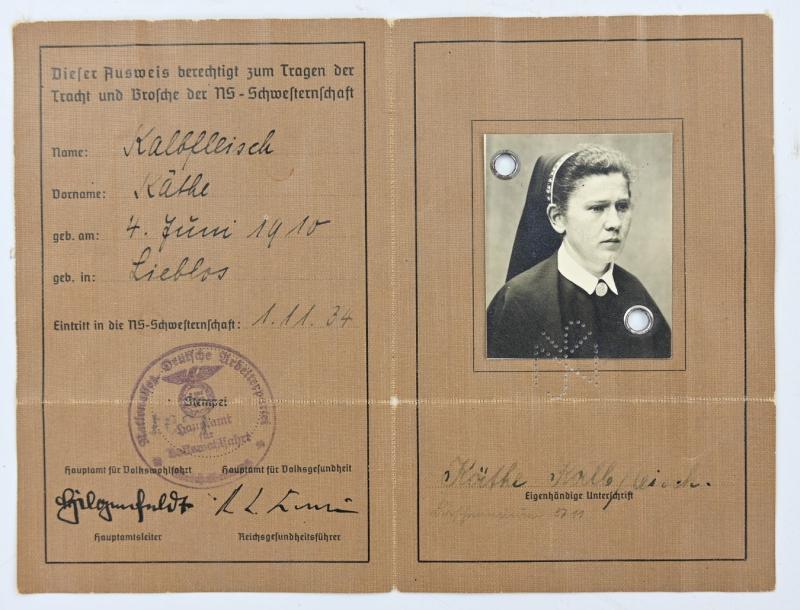 Dieser Ausweis berechtigt zum Tragen der
Tracht und Brosche der NS-Schwesternschaft
Name: Kalbfleisch
Vorname: Käthe
geb. am: 4. Juni 1910
geb. in: Lieblos
Eintritt in die NS-Schwesternschaft: 1.11.34
Nationalsoz. Deutsche Arbeiterpartei
Stempel
Hauptamt
für
Volkswohlfahrt
Hauptamt für Volkswohlfahrt Hauptamt für Volksgesundheit
Hilgenfeldt
Hauptamtsleiter Reichsgesundheitsführer
Käthe Kalbfleisch.
Eigenhändige Unterschrift